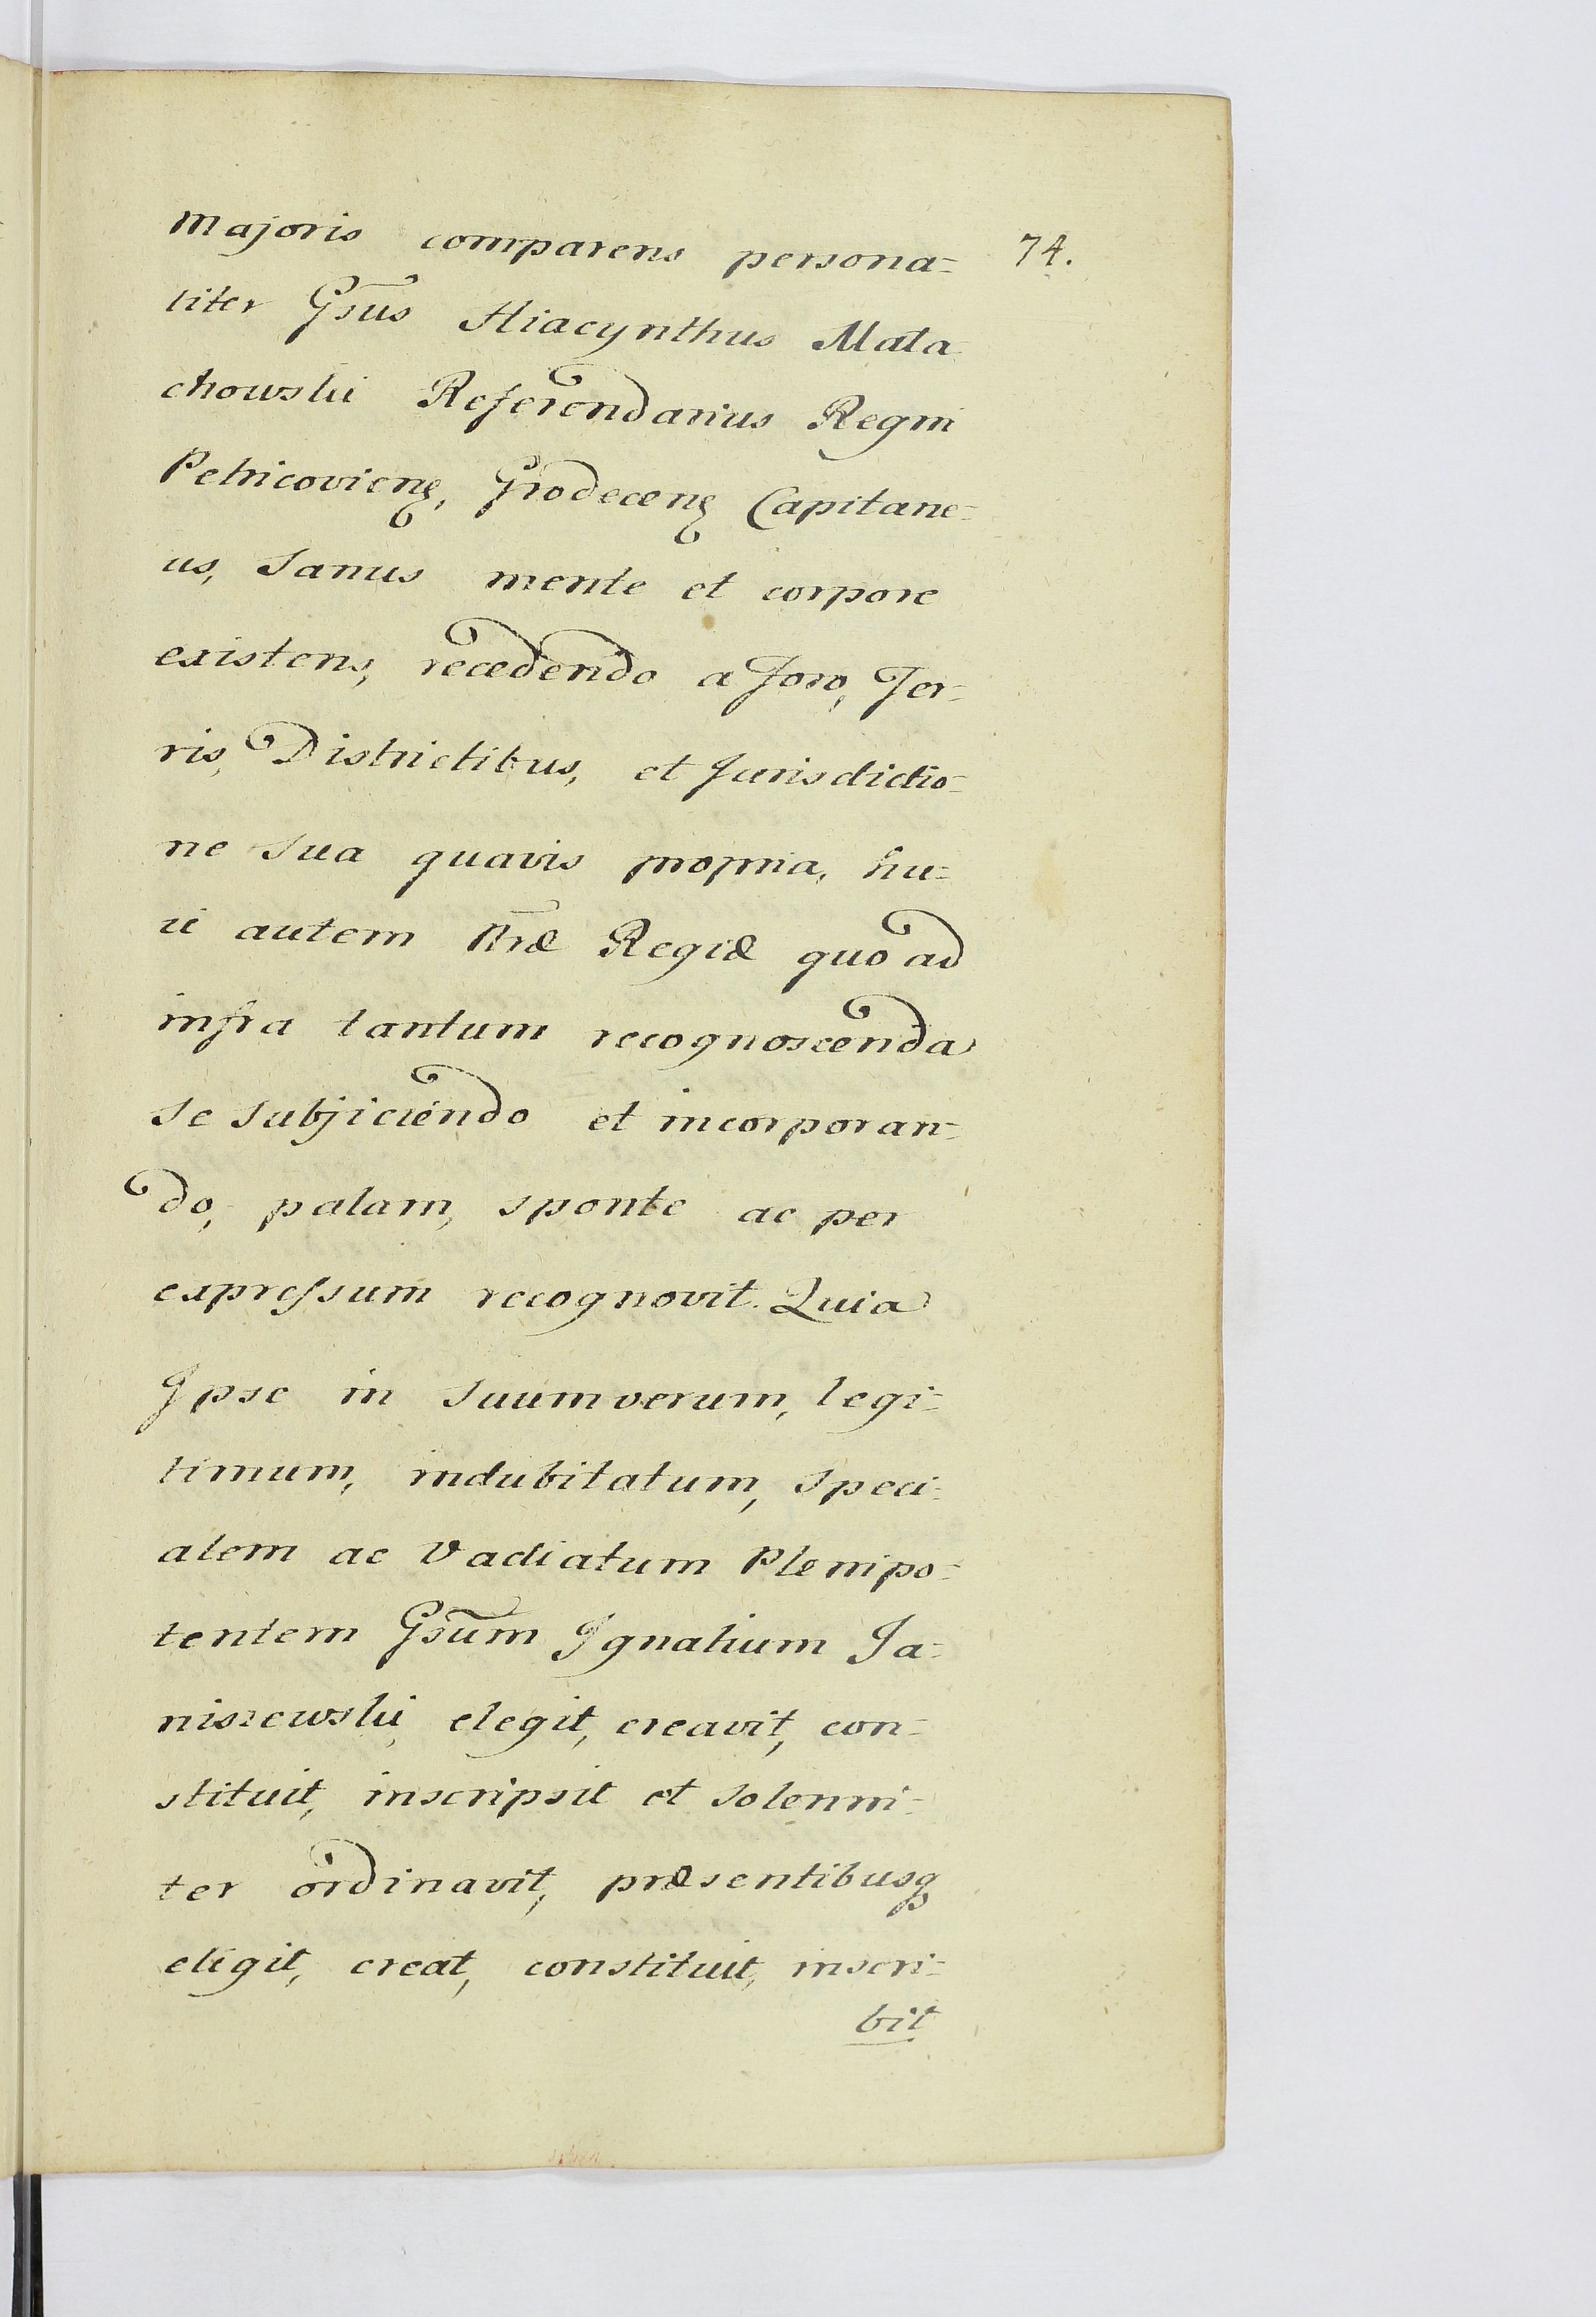 Majoris comparens persona=
74.
liter Gsus Hiacynthus Mala
chowski Referendarius Regni
Petricovien, Grodecen Capitane=
us, sanus mente et corpore
existens, recedendo a Foro, Ter=
ris, Districtibus, et Jurisdictio=
ne sua quavis propria, hu=
ic autem Præ Regiæ quo ad
infra tantum recognoscenda
se subjiciendo et incorporan=
do, palam, sponte ac per
expressum recognovit. Quia
Ipse in suum verum, legi=
timum, indubitatum, speci=
alem ac Vadiatum Plenipo=
tentem Gsum Ignatium Ja=
niszewski, elegit, creavit, con=
stituit, inscripsit et solenni=
ter ordinavit, præsentibusq
eligit, creat, constituit, inscri=
bit